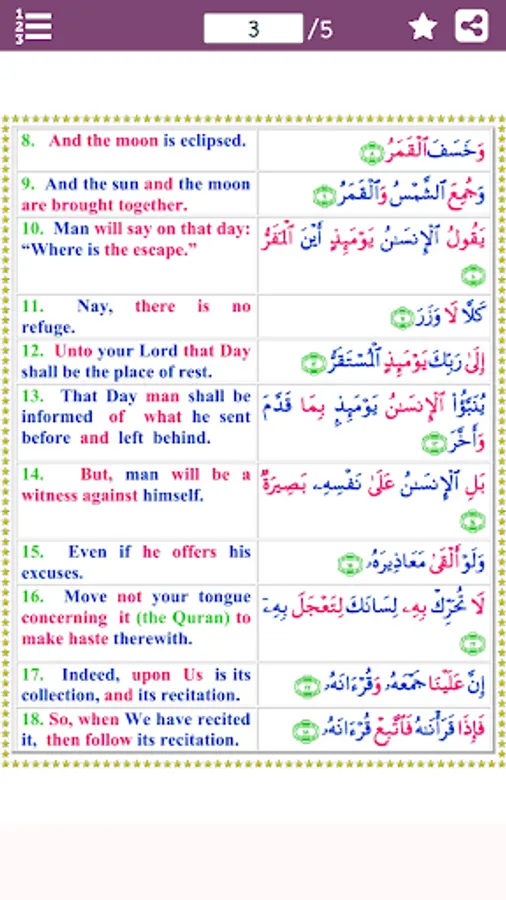 1
2
3
3 /5
8. And the moon is eclipsed.
وَخَسَفَ ٱلْقَمَرُ ٨
9. And the sun and the moon
are brought together.
وَجُمِعَ ٱلشَّمْسُ وَٱلْقَمَرُ ٩
10. Man will say on that day:
“Where is the escape.”
يَقُولُ ٱلْإِنسَـٰنُ يَوْمَئِذٍ أَيْنَ ٱلْمَفَرُّ
١٠
11. Nay, there is no
refuge.
كَلَّا لَا وَزَرَ ١١
12. Unto your Lord that Day
shall be the place of rest.
إِلَىٰ رَبِّكَ يَوْمَئِذٍ ٱلْمُسْتَقَرُّ ١٢
13. That Day man shall be
informed of what he sent
before and left behind.
يُنَبَّؤُا۟ ٱلْإِنسَـٰنُ يَوْمَئِذٍۭ بِمَا قَدَّمَ
وَأَخَّرَ ١٣
14. But, man will be a
witness against himself.
بَلِ ٱلْإِنسَـٰنُ عَلَىٰ نَفْسِهِۦ بَصِيرَةٌ
١٤
15. Even if he offers his
excuses.
وَلَوْ أَلْقَىٰ مَعَاذِيرَهُۥ ١٥
16. Move not your tongue
concerning it (the Quran) to
make haste therewith.
لَا تُحَرِّكْ بِهِۦ لِسَانَكَ لِتَعْجَلَ بِهِۦٓ
١٦
17. Indeed, upon Us is its
collection, and its recitation.
إِنَّ عَلَيْنَا جَمْعَهُۥ وَقُرْءَانَهُۥ ١٧
18. So, when We have recited
it, then follow its recitation.
فَإِذَا قَرَأْنَـٰهُ فَٱتَّبِعْ قُرْءَانَهُۥ ١٨